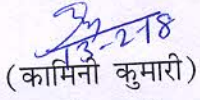 13-2-18
(कामिनी कुमारी)